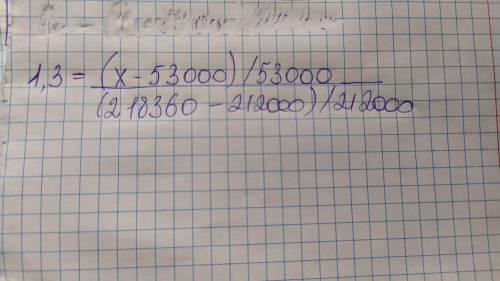 1,3 = (x - 53000) / 53000
(218360 - 212000) / 212000